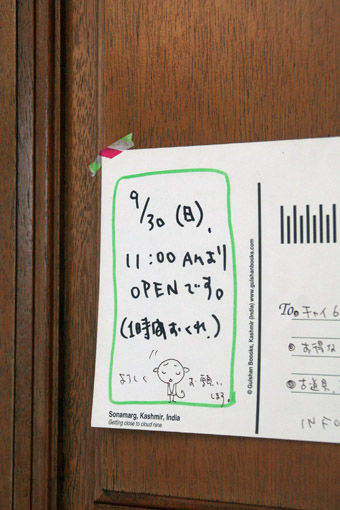 9/30 (日)、
11:00 AMより
OPENです。
(1時間おくれ。)
よろしく お願い
します。
Sonamarg, Kashmir, India
Getting close to cloud nine.
© Gulshan Boooks, Kashmir (India) www.gulshanbooks.com
To。チャイ
お得な
古道具
INFO